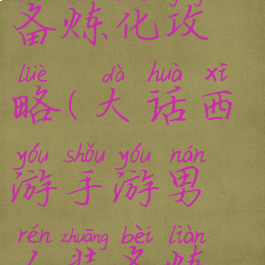 备炼化攻
lüè dà huà xī
略(大话西
yóu shǒu yóu nán
游手游男
rén zhuāng bèi liàn
人装备炼